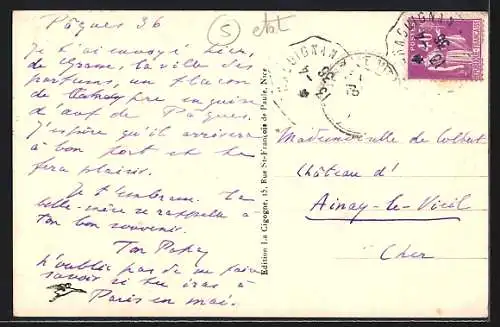 Pâques 36
Je t'ai envoyé hier,
de Grasse, la ville des
parfums, un flacon
de pre en guise
d'œuf de Pâques.
J'espère qu'il arrivera
à bon port et te
fera plaisir.
Je t'embrasse. Ta
belle-mère se rappelle à
ton bon souvenir.
Ton Papa
N'oublie pas de me faire
savoir si tu iras à
Paris en mai.
Edition La Cigogne, 15, Rue St-François de Paule, Nice
Mademoiselle de Colbert
Château d'
Ainay-le-Vieil
Cher